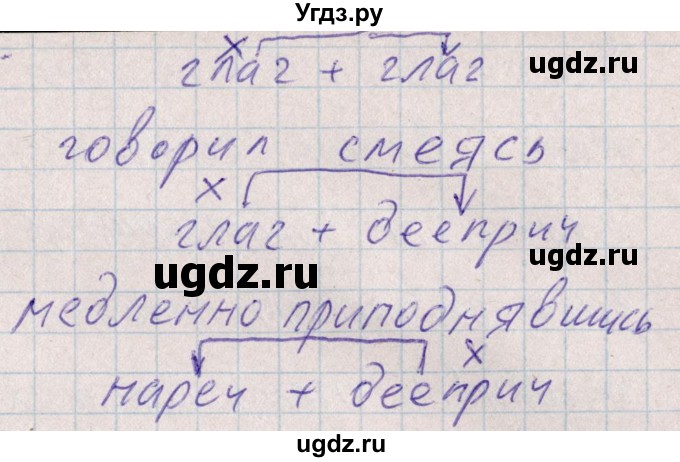 Угдз.ру
х
глаг + глаг
ugdz.ru
говорил смеясь
ugdz.ru
х
глаг + дееприч
ugdz.ru
ugdz.ru
медленно приподнявшись
х
нареч + дееприч
ugdz.ru
ugdz.ru